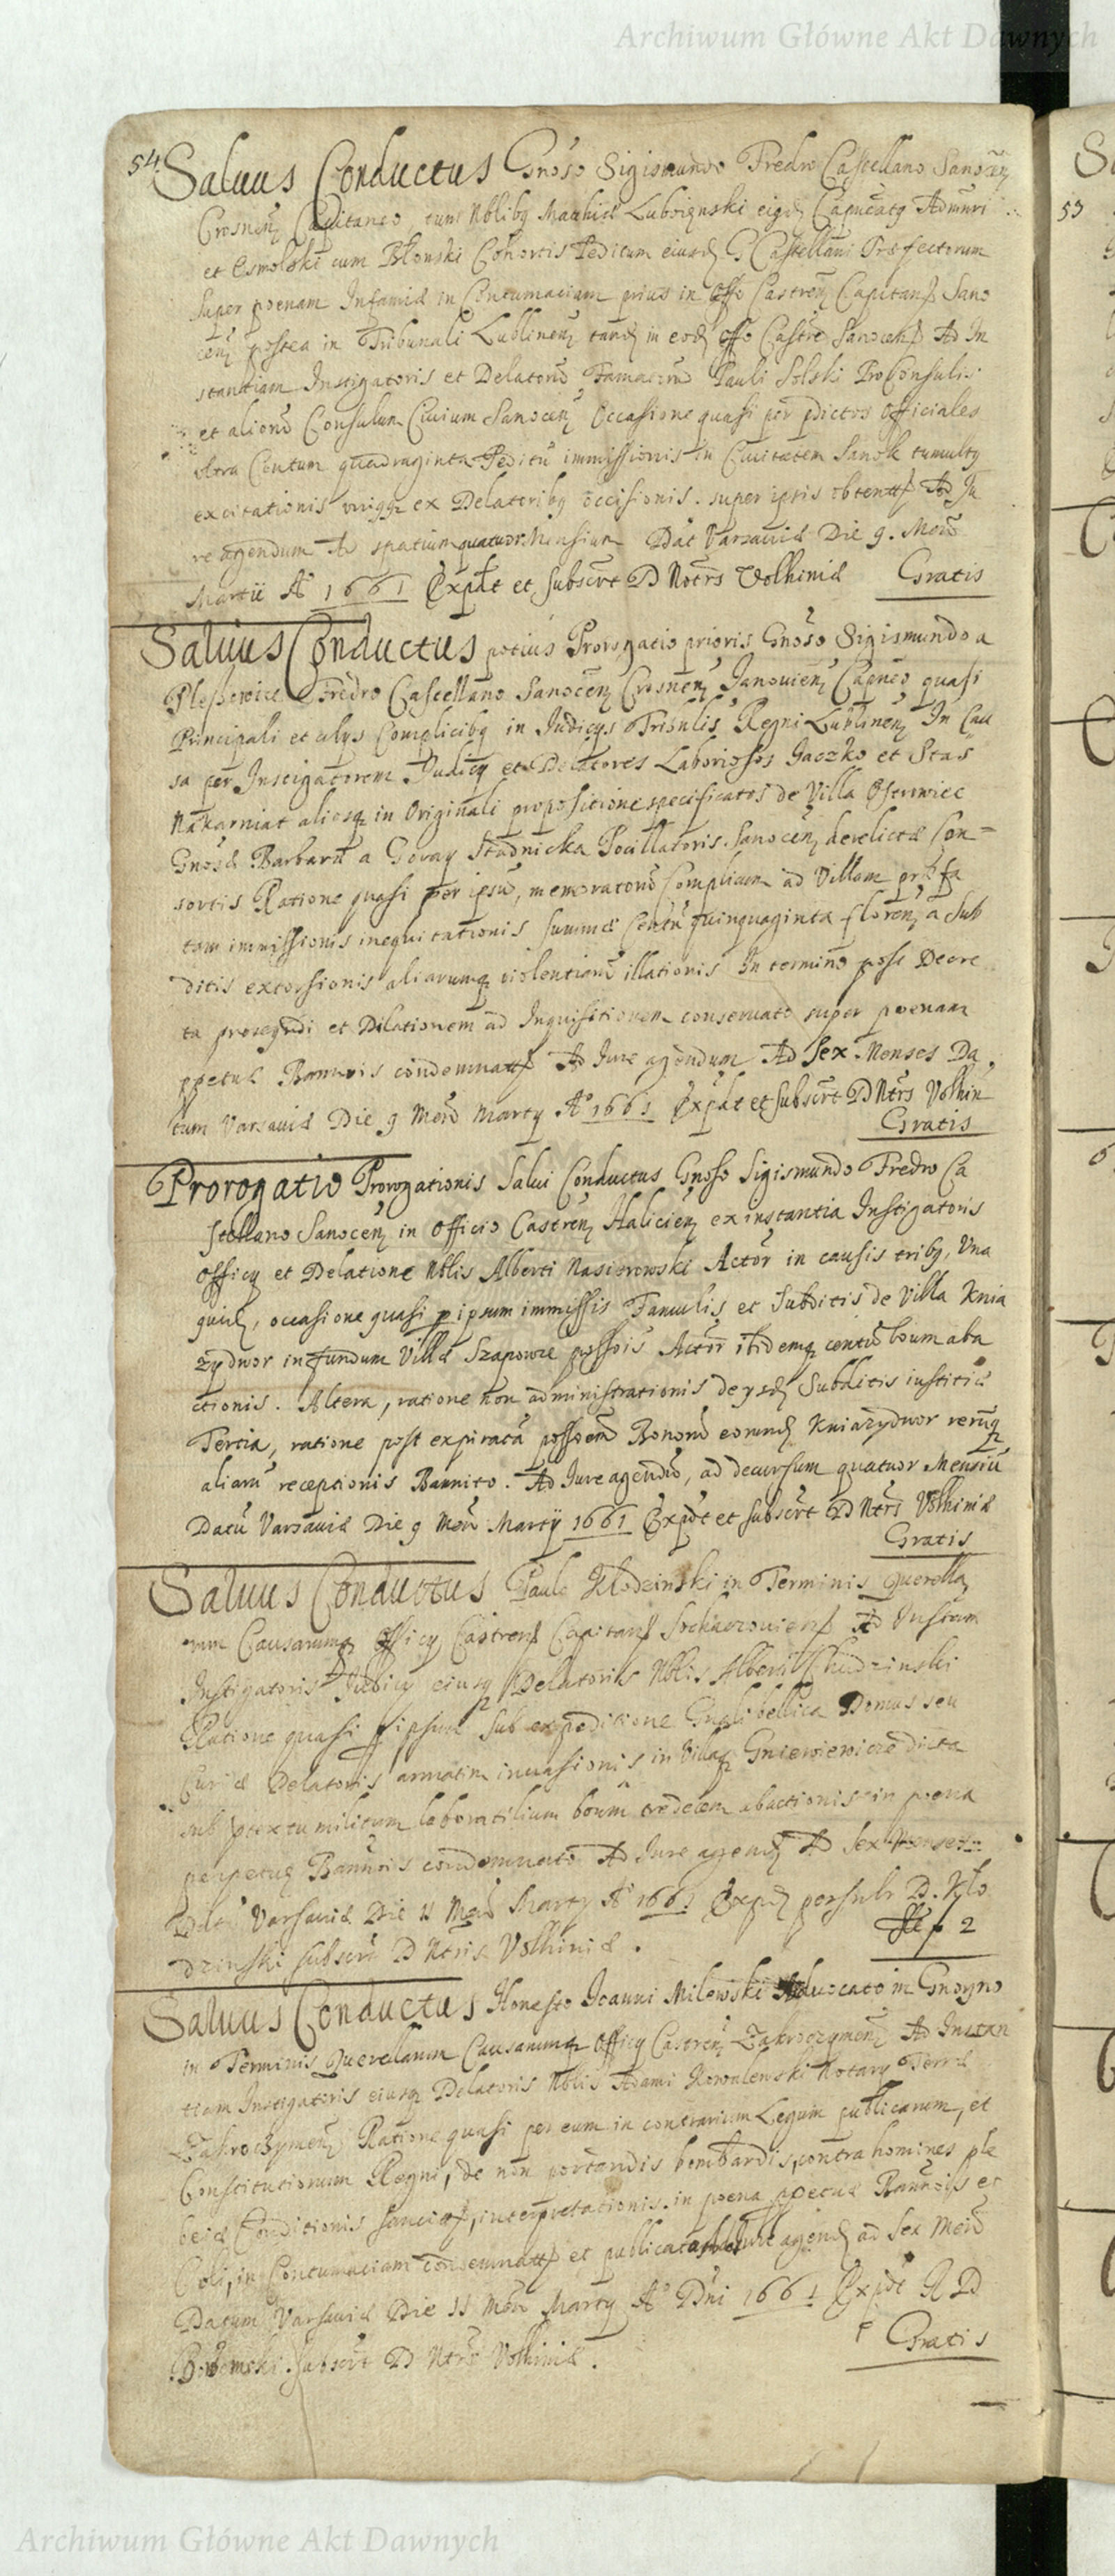 Archiwum Główne Akt Dawnych
54
Saluus Conductus Gnoso Sigismundo Fredro Castellano Sanocen
Crosnen Capitaneo tum Nblibg eigd Capucatg
et Esmolski cum Błonski Cohortis Peditum eiusd G Castellani Præfectorum
Super poenam Infamiæ in Contumaciam prius in Offo Castren Capitan Sano
cen postea in Tribunali Lublinen tand in eod offo Castren Sanocen Ad In
stantiam Instigatoris et Delatorũ Famatorũ Pauli Solski ProConsulis
et aliorũ Consulum Ciuium Sanocen Occasione quasi per pdictos Officiales
Centum quadraginta Peditũ immissionis in Ciuitatem Sanok tumultg
excitationis ex Delatoribg occisionis super ipsis obtent Ad Ju
re agendum Ad spatium quatuor Mensium Dat Varsauiæ Die 9. Mens
Martii A° 1661 Expdt et subscrt D Notrs Volhiniæ Gratis
Saluus Conductus potius Prorogatio prioris Gnoso Sigismundo a
Pleszowice Fredro Castellano Sanocen Crosnen Janouien Capneo quasi
Principali et alys Complicibg in Judicys Tribnlis Regni Lublinen In Cau
sa per Instigatorem Judicy et Delatores Laboriosos Gaczko et Stas
Nakarniat aliosq in Originali propositione specificatos de Villa
Gnosæ Barbaræ a Stadnicka Pocillatoris Sanocen derelictæ Con=
sortis Ratione quasi per ipsũ, memoratorũ Complicum ad Villam præfa
tam immissionis inequitationis summæ Centũ quinquaginta floren a Sub
ditis extorsionis aliarumq violentiarũ illationis In termino post Decre
ta et Dilationem ad Inquisitionem conseruato super poenam
ppetuæ Bannitis condemnat Ad Jure agendum Ad Sex Menses Da
tum Varsauiæ Die 9 Mens Marty A° 1661 Expdt et subscrt D Ntrs Volhin
Gratis
Prorogatio Prorogationis Salui Conductus Gnoso Sigismundo Fredro Ca
stellano Sanocen in Officio Castren Halicien ex instantia Instigatoris
Officy et Delatione Nblis Alberti Nasierowski Actor in causis tribg, Una
quid, occasione quasi p ipsum immissis Famulis et Subditis de Villa Knia
zydwor in fundum Villæ Szapowce possois Actor ibidemq centũ boum aba
ctionis. Altera, ratione non administrationis de ysd Subditis iustitiæ
Tertia, ratione post expiratã possoem Bonorũ eorund Kniazydwor rerũq
aliarũ receptionis Bannito. Ad Jure agendũ, ad decursum quatuor Mensiũ
Datũ Varsauiæ Die 9 Mens Martij 1661 Expdt et subscrt D Ntrs Volhiniæ
Gratis
Saluus Conductus Paulo Kłodzinski in Terminis Querella
rum Causarumq Officy Castren Capitan Sochaczouien Ad Instam
Instigatoris Judicy eiusq Delatoris Nblis Alberti Chudzinski
Ratione quasi p ipsum sub expeditione bellica Domus seu
Curiæ Delatoris armatim inuasionis in Villa Gniewiewice dicta
sub ptextu militum laboratilium boum tredecem abactionis in poena
perpetuæ Bannois condemnato Ad Jure agend Ad Sex Menses
Dat Varsauiæ Die 11 Mens Marty A° 1661 Exped persubs D. Kło
dzinski subscrt D Ntris Volhiniæ. 2
Saluus Conductus Honesto Joanni Milewski Aduocato in Gnoyno
in Terminis Querellarum Causarumq Officy Castren Zakroczymen Ad Instan
tiam Instigatoris eiusq Delatoris Nblis Adami Kowalewski Notary Terræ
Zakroczymen Ratione quasi per eum in contrarium Legum publicarum, et
Constitutionum Regni, de non portandis bombardis, contra homines ple
beiæ Conditionis sancit, interpretationis in poena ppetuæ Bannois et
Coli, in Contumaciam condemnat et publicat Jure agend ad Sex Mens
Datum Varsauiæ Die 11 Mens Marty A° Dni 1661 Expdt R D
subscrt D Ntrs Volhiniæ. Gratis
53
Archiwum Główne Akt Dawnych